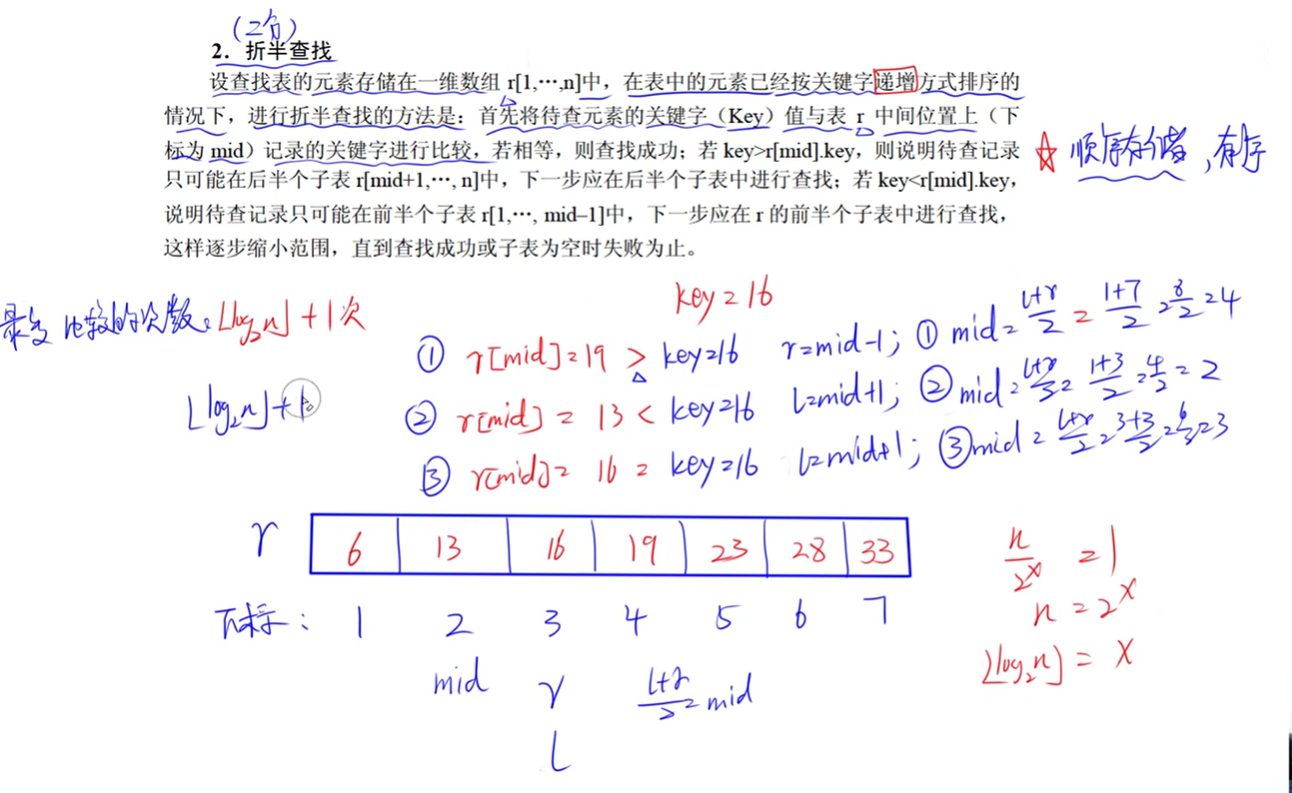 （2分）
2．折半查找
设查找表的元素存储在一维数组 r[1,…,n]中，在表中的元素已经按关键字递增方式排序的
情况下，进行折半查找的方法是：首先将待查元素的关键字（Key）值与表 r 中间位置上（下
标为 mid）记录的关键字进行比较，若相等，则查找成功；若 key>r[mid].key，则说明待查记录
只可能在后半个子表 r[mid+1,…, n]中，下一步应在后半个子表中进行查找；若 key<r[mid].key，
说明待查记录只可能在前半个子表 r[1,…, mid–1]中，下一步应在 r 的前半个子表中进行查找，
这样逐步缩小范围，直到查找成功或子表为空时失败为止。
☆ 顺序存储，有序
最多比较的次数：⌊log₂n⌋+1次
⌊log₂n⌋+1
key=16
① r[mid]=19 > key=16 r=mid-1; ① mid=(l+r)/2=(1+7)/2=8/2=4
② r[mid]=13 < key=16 l=mid+1; ② mid=(l+r)/2=(1+3)/2=4/2=2
③ r[mid]=16 = key=16 l=mid+1; ③ mid=(l+r)/2=(3+3)/2=6/2=3
r 6 13 16 19 23 28 33
下标： 1 2 3 4 5 6 7
mid r (l+r)/2=mid
l
n/2ˣ=1
n=2ˣ
⌊log₂n⌋=x